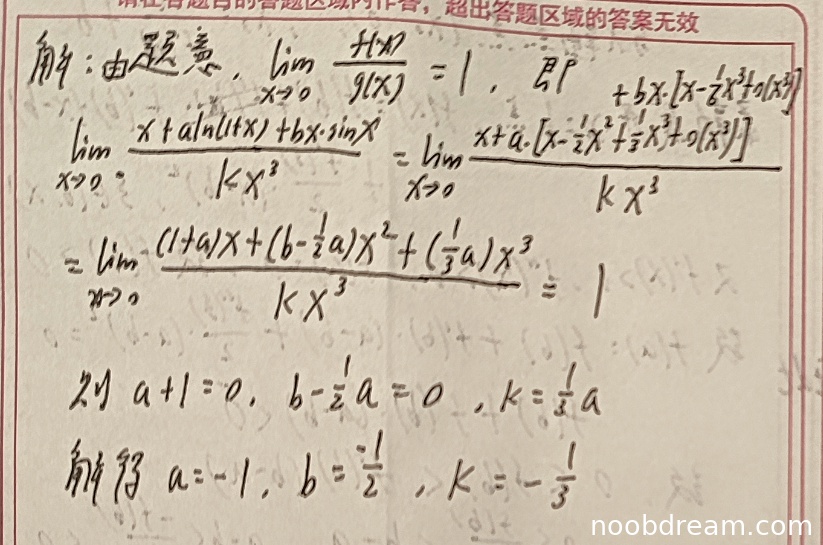 请在各题目的答题区域内作答，超出答题区域的答案无效
解：由题意，lim x→0 f(x)/g(x) = 1，即
lim x→0 (x+aln(1+x)+bx·sinx)/(kx³) = lim x→0 (x+a·[x-1/2x²+1/3x³+o(x³)]+bx·[x-1/6x³+o(x³)])/(kx³)
= lim x→0 ((1+a)x+(b-1/2a)x²+(1/3a)x³)/(kx³) = 1
则 a+1=0，b-1/2a=0，k=1/3a
解得 a=-1，b=-1/2，k=-1/3
noobdream.com